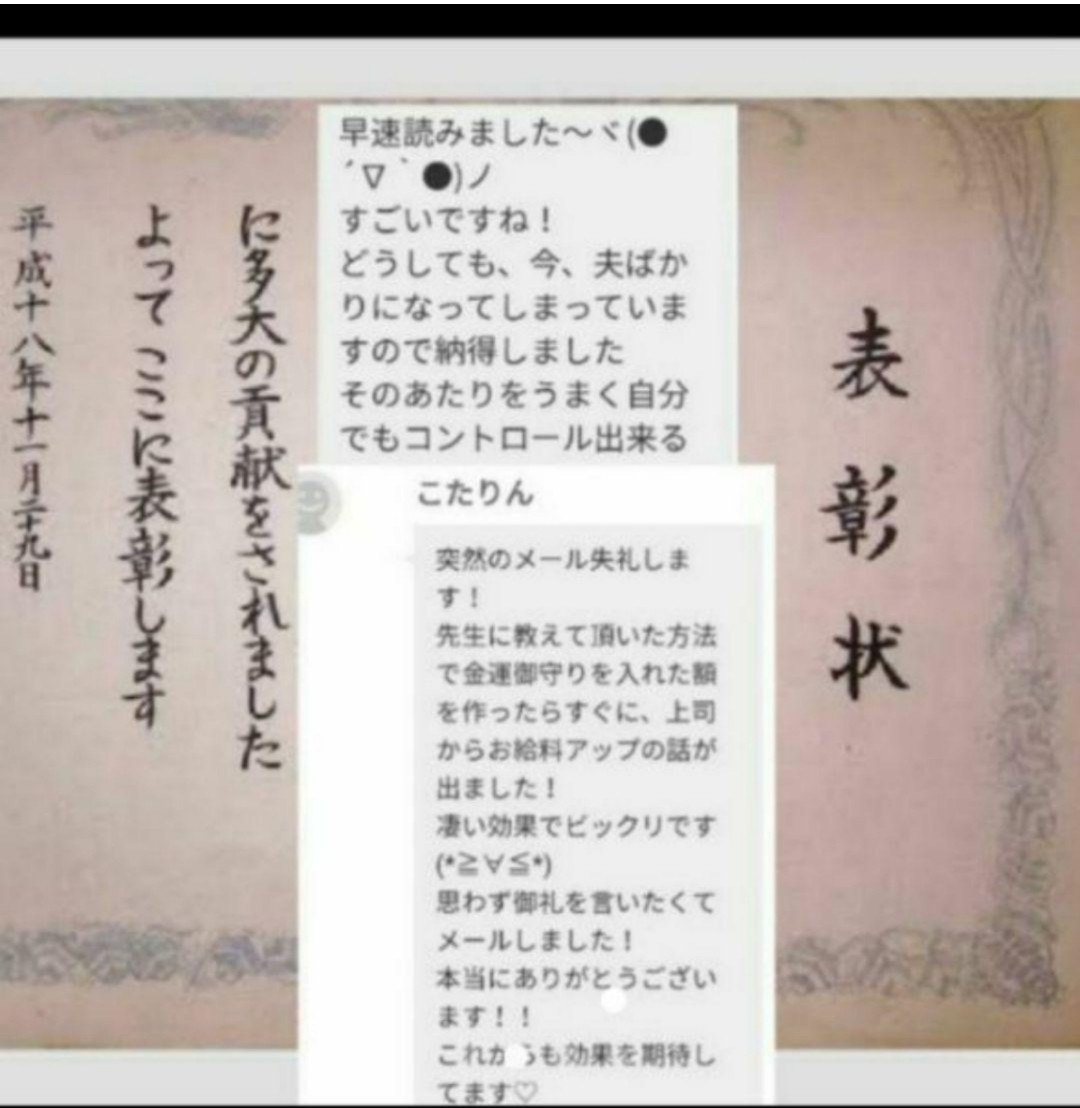 表彰状
に多大の貢献をされました
よって ここに表彰します
平成十八年十一月二十九日
早速読みました～ヾ(●
´∇｀●)ノ
すごいですね！
どうしても、今、夫ばか
りになってしまっていま
すので納得しました
そのあたりをうまく自分
でもコントロール出来る
こたりん
突然のメール失礼しま
す！
先生に教えて頂いた方法
で金運御守りを入れた額
を作ったらすぐに、上司
からお給料アップの話が
出ました！
凄い効果でビックリです
(*≧∀≦*)
思わず御礼を言いたくて
メールしました！
本当にありがとうござい
ます！！
これからも効果を期待し
てます♡